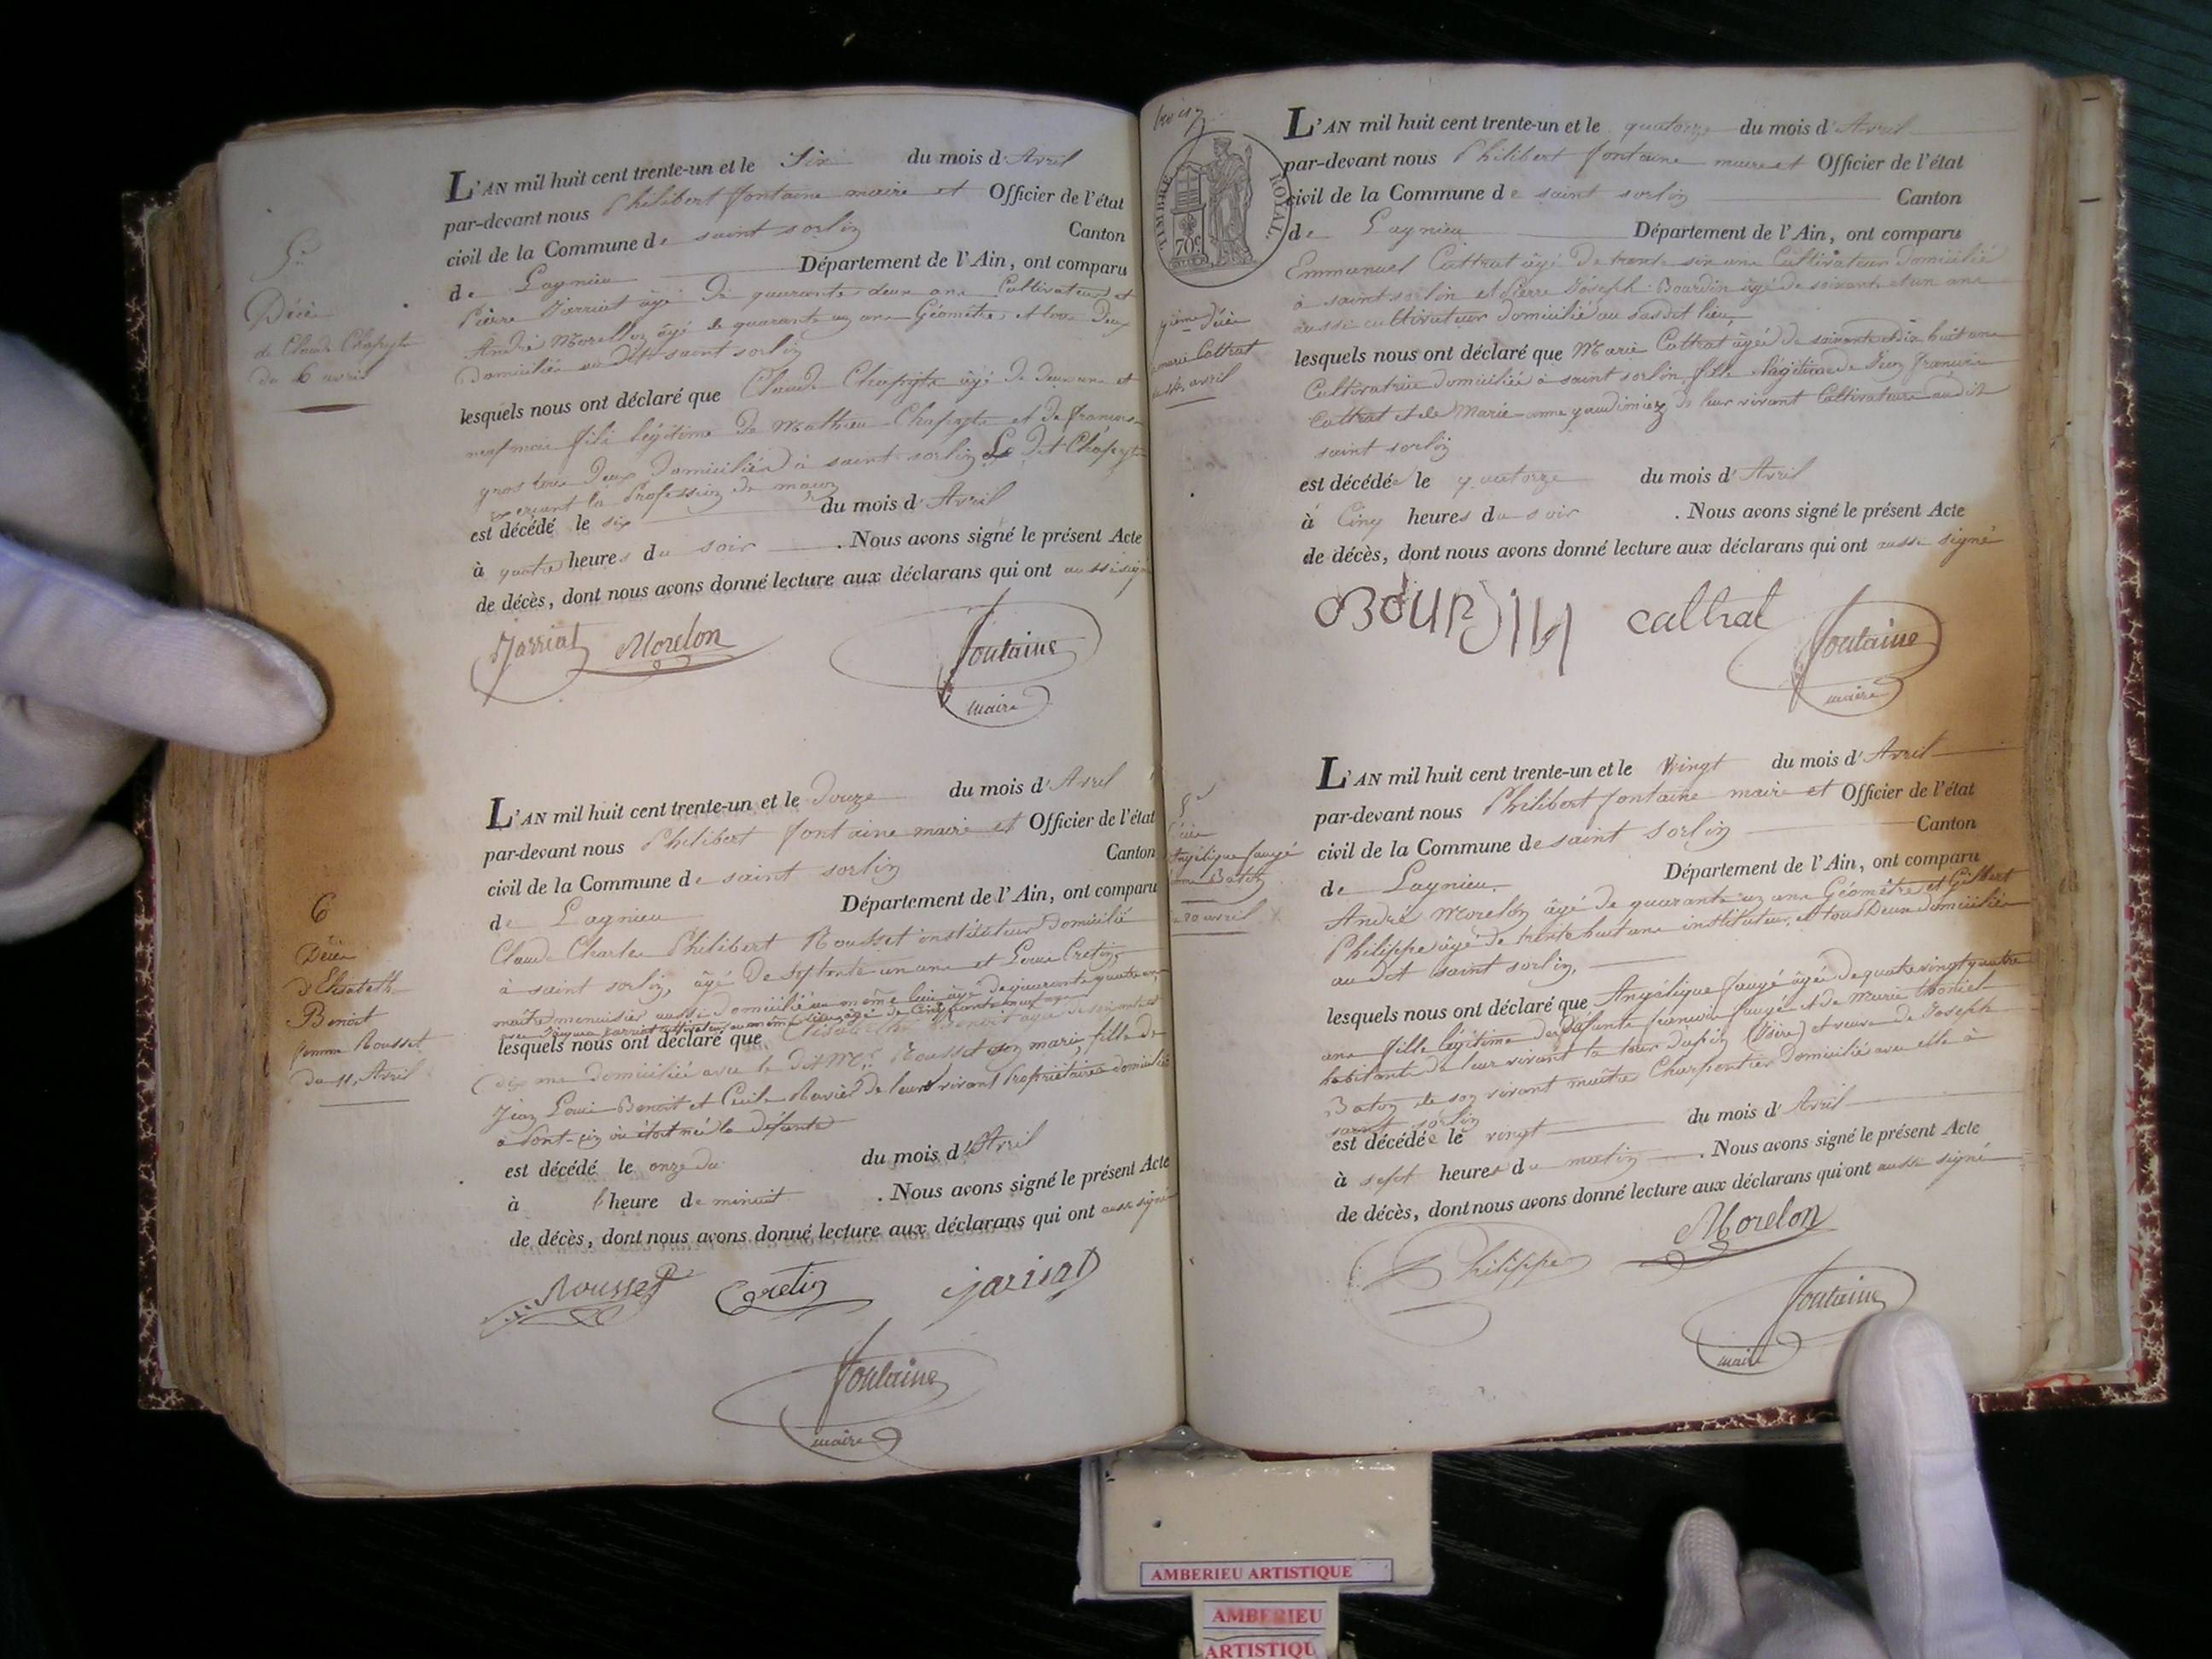 5e
Décès
de Claude Chapuyt
du 6 avril
L'AN mil huit cent trente-un et le Six du mois d'Avril
par-devant nous Philibert fontaine maire et Officier de l'état
civil de la Commune de saint sorlin Canton
de Lagnieu Département de l'Ain, ont comparu
Pierre Jarriat âgé de quarante deux ans Cultivateur et
André Morellon âgé de quarante un ans Géomètre, et tous deux
domiciliés au dit saint sorlin
lesquels nous ont déclaré que Claude âgé de deux ans et
neuf mois fils légitime de Mathieu et de françoise
gros tous deux domiciliés à saint sorlin Le dit
exerçant la Profession de maçon
est décédé le six du mois d'Avril
à quatre heures du soir . Nous avons signé le présent Acte
de décès, dont nous avons donné lecture aux déclarans qui ont aussi signé
Jarriat Morelon fontaine
maire
6
Décès
d'Elisabeth
Benoit
femme Rousset
du 11 Avril
L'AN mil huit cent trente-un et le Douze du mois d'Avril
par-devant nous Philibert fontaine maire et Officier de l'état
civil de la Commune de saint sorlin Canton
de Lagnieu Département de l'Ain, ont comparu
Claude Charles Philibert Rousset instituteur Domicilié
à saint sorlin, âgé de septante un ans et Louis Cretin,
maître menuisier aussi domicilié au même lieu âgé de quarante quatre ans
Jarriat au même lieu âgé de Cinquante neuf ans
lesquels nous ont déclaré que Elisabeth Benoit âgée de soixante et
dix ans domiciliée avec le dit Mr. Rousset son mari, fille de
Jean Louis Benoit et Cécile Ravier de leur vivant Propriétaires domiciliés
à où étoit née la défunte
est décédé le onze du du mois d'Avril
à l'heure de minuit . Nous avons signé le présent Acte
de décès, dont nous avons donné lecture aux déclarans qui ont aussi signé
Rousset Cretin jariat
fontaine
maire
TIMBRE ROYAL.
70c
7ième Décès
marie Cattrat
du 14 avril
L'AN mil huit cent trente-un et le quatorze du mois d'Avril
par-devant nous Philibert fontaine maire et Officier de l'état
civil de la Commune de saint sorlin Canton
de Lagnieu Département de l'Ain, ont comparu
Emmanuel Cattrat âgé de trente six ans Cultivateur domicilié
à saint sorlin et Pierre Joseph Bourdin âgé de soixante et un ans
aussi cultivateur domicilié au susdit lieu
lesquels nous ont déclaré que Marie Cattrat âgée de soixante et dix huit ans
Cultivatrice domiciliée à saint sorlin fille légitime de feu françois
Cattrat et de Marie anne de leur vivant Cultivateurs audit
saint sorlin
est décédée le quatorze du mois d'Avril
à Cinq heures du soir . Nous avons signé le présent Acte
de décès, dont nous avons donné lecture aux déclarans qui ont aussi signé
BOURDIN cattrat fontaine
maire
8e
Décès
Angélique faugé
Baton
20 avril
L'AN mil huit cent trente-un et le Vingt du mois d'Avril
par-devant nous Philibert fontaine maire et Officier de l'état
civil de la Commune de saint sorlin Canton
de Lagnieu. Département de l'Ain, ont comparu
André Morelon âgé de quarante un ans Géomètre et Gilbert
Philippe âgé de trente huit ans instituteur, et tous Deux domiciliés
au dit saint sorlin,
lesquels nous ont déclaré que Angélique faugé âgée de quatre vingt quatre
ans fille légitime de défunts françois faugé et de Marie
habitants de leur vivant la tour dupin (Isère) et veuve de Joseph
Baton de son vivant maître Charpentier domicilié avec elle à
saint sorlin
est décédée le vingt du mois d'Avril
à sept heures du matin . Nous avons signé le présent Acte
de décès, dont nous avons donné lecture aux déclarans qui ont aussi signé
Philippe Morelon
fontaine
maire
AMBERIEU ARTISTIQUE
AMBERIEU
ARTISTIQU